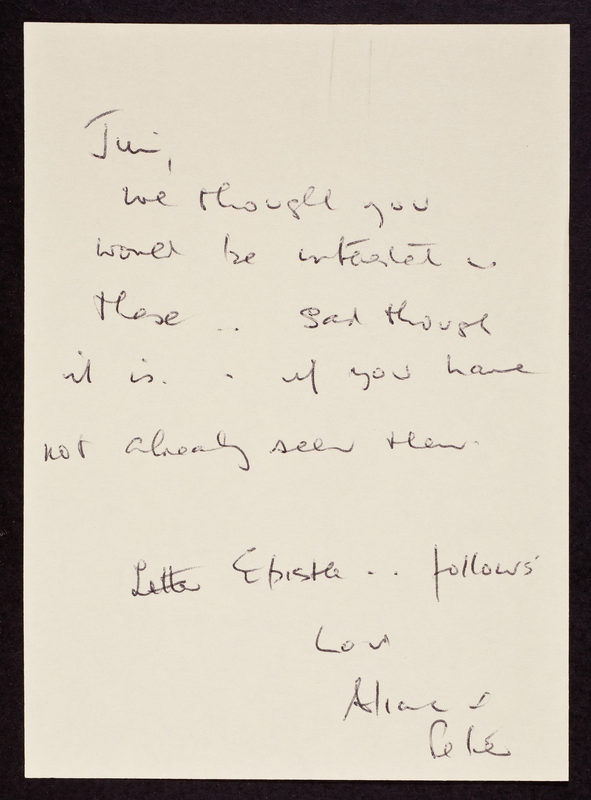 Jim,
we thought you
would be interested in
these .. sad though
it is . . if you have
not already seen them.
Letter Epistle .. follows
Love
&
Peter